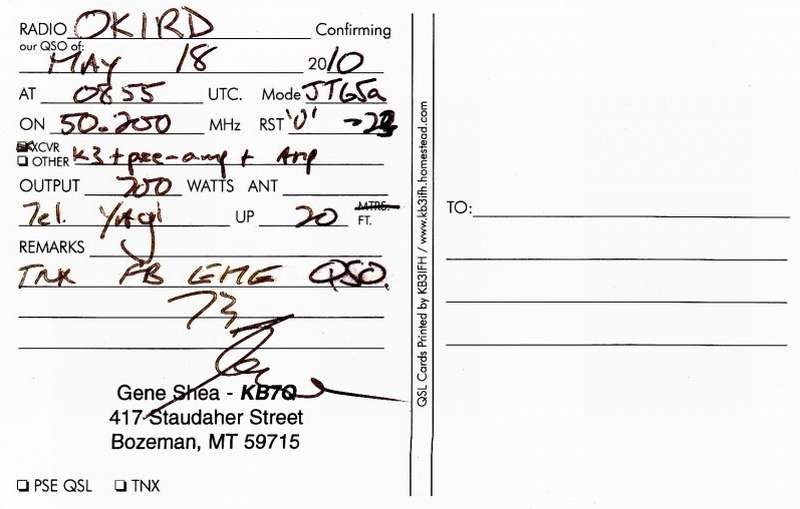 RADIO OK1RD Confirming
our QSO of:
MAY 18 2010
AT 0855 UTC. Mode JT65a
ON 50.200 MHz RST 'O' -23
XCVR
OTHER K3 + pre-amp + Amp
OUTPUT 700 WATTS ANT
7el. Yagi UP 20 MTRS.
FT.
REMARKS
TNX FB EME QSO.
73
Gene
Gene Shea - KB7Q
417 Staudaher Street
Bozeman, MT 59715
PSE QSL TNX
QSL Cards Printed by KB3IFH / www.kb3ifh.homestead.com
TO: